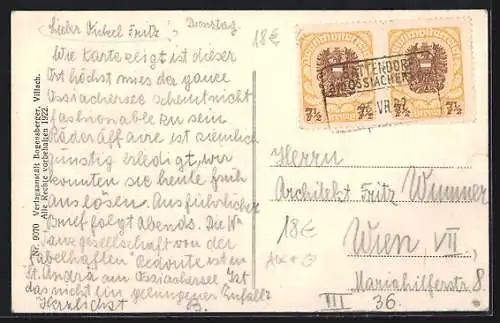 Lieber Onkel Fritz!
Dienstag.
Wie Karte zeigt ist dieser
Ort höchst mies der ganze
Ossiachersee scheint nicht
fashionable zu sein
Räder Affaire ist ziemlich
günstig erledigt, wir
konnten sie heute früh
auslösen. Ausführlicher
Brief folgt abends. Die
Tanzgesellschaft von der
"fabelhaften" Redoute ist in
St. Andrä am Ossiachersee. Ist
das nicht ein gelungener Zufall?
Herzlichst
B.
Nr. 9070 Verlagsanstalt Bogensberger, Villach.
Alle Rechte vorbehalten 1922.
18€
7½ 7½ 7½
OSSIACHERS
VII
Herrn
Architekt Fritz Wimmer
18€
Wien VII,
Mariahilferstr. 8
III 36.